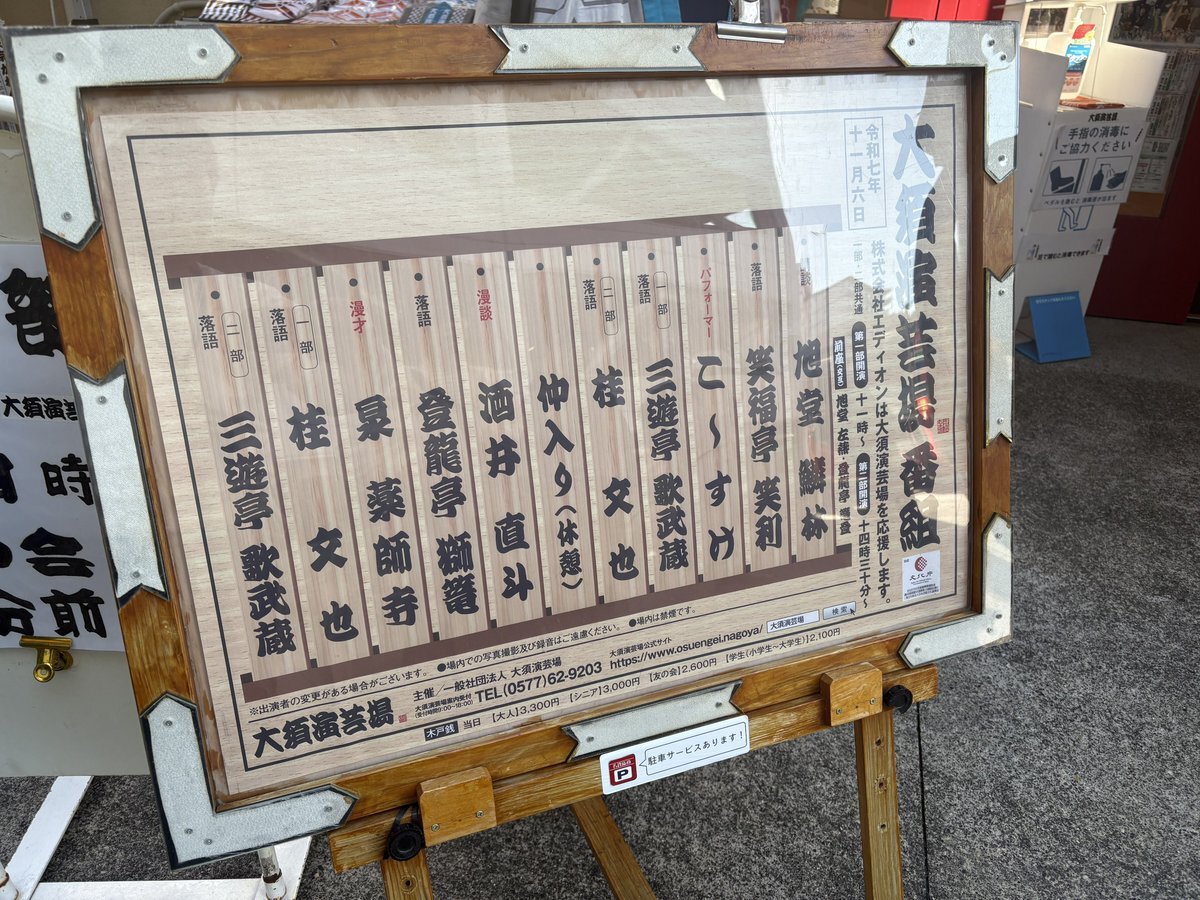 大須演芸場番組
令和七年
十一月六日
株式会社エディオンは大須演芸場を応援します。
一部・二部共通
第一部開演
十一時〜
第二部開演
十四時三十分〜
旭堂 鱗林
落語
笑福亭 笑利
パフォーマー
こ〜すけ
一部
落語
三遊亭 歌武蔵
二部
落語
桂 文也
仲入り(休憩)
漫談
酒井 直斗
落語
登龍亭 獅篭
漫才
泉 薬師寺
一部
落語
桂 文也
二部
落語
三遊亭 歌武蔵
※出演者の変更がある場合がございます。 ●場内での写真撮影及び録音はご遠慮ください。 ●場内は禁煙です。
大須演芸場
主催/一般社団法人 大須演芸場
大須演芸場案内受付
(受付時間9:00~18:00)
TEL(0577)62-9203
大須演芸場公式サイト
https://www.osuengei.nagoya/
大須演芸場
検索
木戸銭
当日 【大人】3,300円 【シニア】3,000円 【友の会】2,600円 【学生(小学生〜大学生)】2,100円
文化庁
P
駐車サービスあります!
大須演芸場
手指の消毒に
ご協力ください
ペダルを踏むと 消毒液が出ます
大須演芸
時
会
前